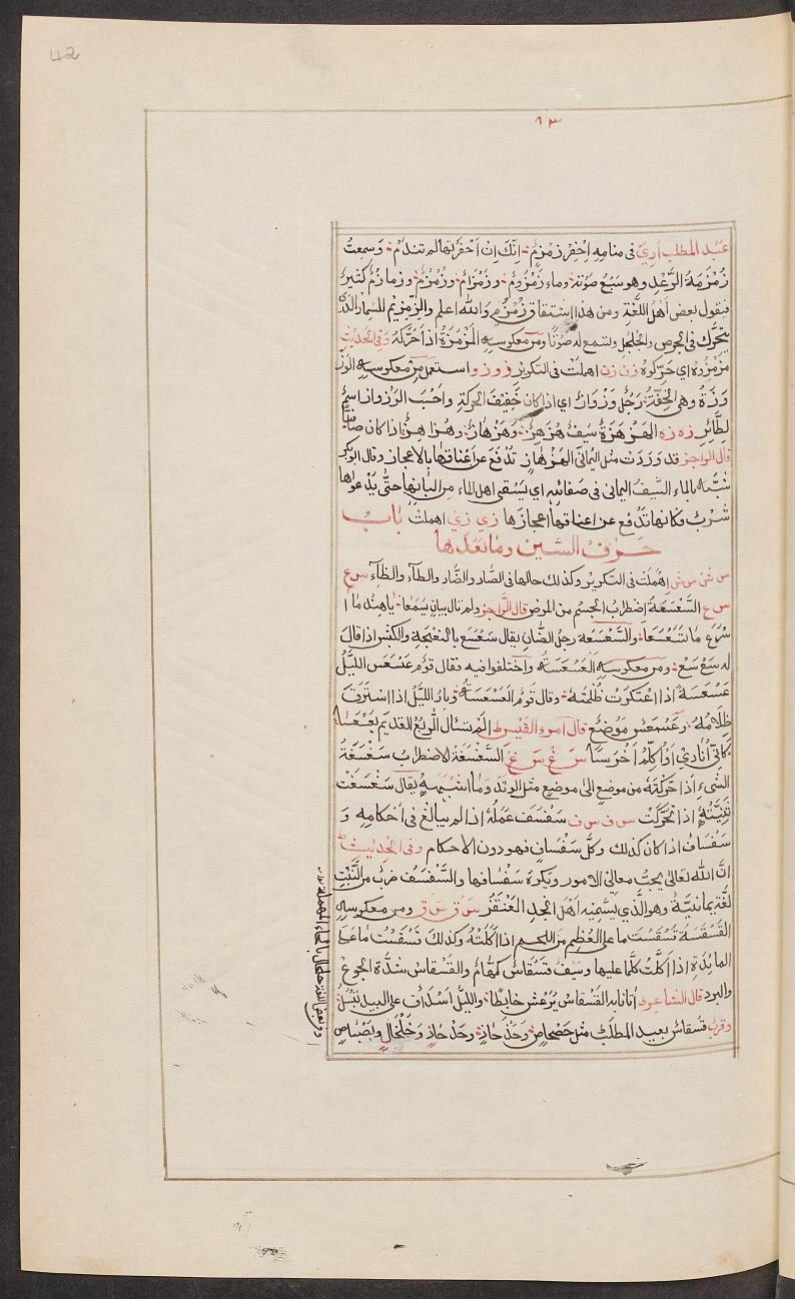 42
٨٣
عبد المطلب اري في منامه احفر زمزم انك ان احفرتها لم تندم وسمعت
زمزمة الرعد وهو سبع صوته وماء زمزوم وزمزام وزمزم وزمازم كثير
فيقول بعض اهل اللغة ومن هذا اشتقاق زمزم والله اعلم والزمزيم للسمار الذي
يتحرك في الجرص والجلجل وتسمع له صوتا ومن معكوسه المزمزة اذا حركة وفي الحديث
مزمزوه اي حركوه زن زن اهملت في التكرير زو زو استعمل من معكوسه الوز
وزة وهي الخفة رجل وزواز اي اذا كان خفيف الحركة واحسب الوزواز اسم
لطائر زه زه الهزهزة سيف هزهز وهزهاز وهزاهز اذا كان صافيا
قال الراجز قد وردت مثل اليماني الهزهاز تدفع عن اعناقها بالاعجاز وقال ابو بكر
شبه بالماء السيف اليماني في صفائه اي يسقى اهل الماء من البانها حتى يدعوها
شرب فكانها تدفع عن اعناقها اعجازها زي زي اهملت باب
حرف السين وما بعدها
س ش س ش اهملت في التكرير وكذلك حالها في الصاد والضاد والطاء والظاء س ع
س ع السعسعة اضطراب الجسم من المرض قال الراجز ولم نال بيان سمعا يا هند ما ا
سرع ما تسعسعا والسعسعة زجل الضان يقال سعسع بالنعجة والكبش اذا قال
له سع سع ومن معكوسه العسعسة واختلفوا فيه فقال قوم عسعس الليل
عسعسة اذا اعتكرت ظلمته وقال قوم العسعسة دبار الليل اذا استرق
ظلامه وعسعس موضع قال امرء القيس الم تسئال الربع القديم بعسعسا
كاني أنادي او أكلم أخرسا س غ س غ السغسغة الاضطراب سغسغة
الشيء اذا حركته من موضع الى موضع مثل الوتد وما اشبهه يقال سغسغت
ثنيته اذا تحركت س ف س ف سفسف عمله اذا لم يبالغ في احكامه و
سفساف اذا كان كذلك وكل سفساف فهو دون الاحكام وفي الحديث
ان الله تعالى يحب معالي الامور ويكره سفسافها والسفسف ضرب من النبت
لغة يمانية وهو الذي يسميه اهل نجد العنقز س ق س ق ومن معكوسه
القسقسة قسقست ما على العظم من اللحم اذا أكلته وكذلك قسقست ما على
المائدة اذا اكلت كلما عليها وسيف قسقاس كهام والقسقاس شدة الجوع
والبرد قال الشاعر أتانا به القسقاس يرعش خابطا والليل اسداف على البيد تسبل
وقرب قسقاس بعيد المطلب مثل حصحاص وحذحاذ وحذ حاذ وخلخال وبصباص